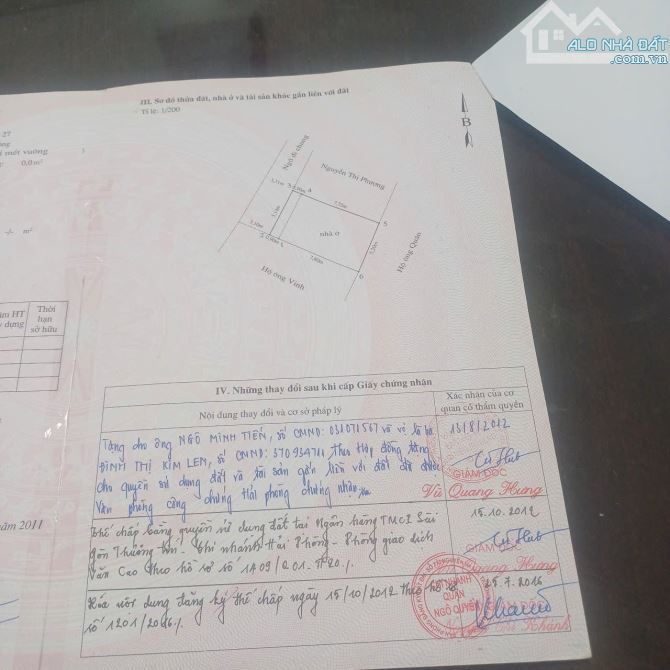 ALO NHÀ ĐẤT
.com.vn
III. Sơ đồ thửa đất, nhà ở và tài sản khác gắn liền với đất
Tỉ lệ: 1/200
B
27
mét vuông
0,0 m²
-/- m²
Ngõ đi chung
Nguyễn Thị Phương
3 4
5
nhà ở
Hộ ông Quân
2 1
6
Hộ ông Vinh
HT
dụng
Thời
hạn
sở hữu
năm 2011
IV. Những thay đổi sau khi cấp Giấy chứng nhận
Nội dung thay đổi và cơ sở pháp lý
Xác nhận của cơ
quan có thẩm quyền
Tặng cho ông NGÔ MINH TIẾN, số CMND: 031071567 và vợ là bà
ĐINH THỊ KIM LEN, số CMND: 370934711 theo Hợp đồng tặng
cho quyền sử dụng đất và tài sản gắn liền với đất đã được
Văn phòng công chứng Hải Phòng chứng nhận
13/8/2012
GIÁM ĐỐC
Vũ Quang Hưng
Thế chấp bằng quyền sử dụng đất tại Ngân hàng TMCP Sài
gòn Thương tín - Chi nhánh Hải Phòng - Phòng giao dịch
Văn Cao theo hồ sơ số 1A09
15.10.2012
GIÁM ĐỐC
Quang Hưng
Xóa nội dung đăng ký thế chấp ngày 15/10/2012 theo hồ sơ
số 1201/2016
25.7.2016
CHI NHÁNH
QUẬN
NGÔ QUYỀN
Khánh